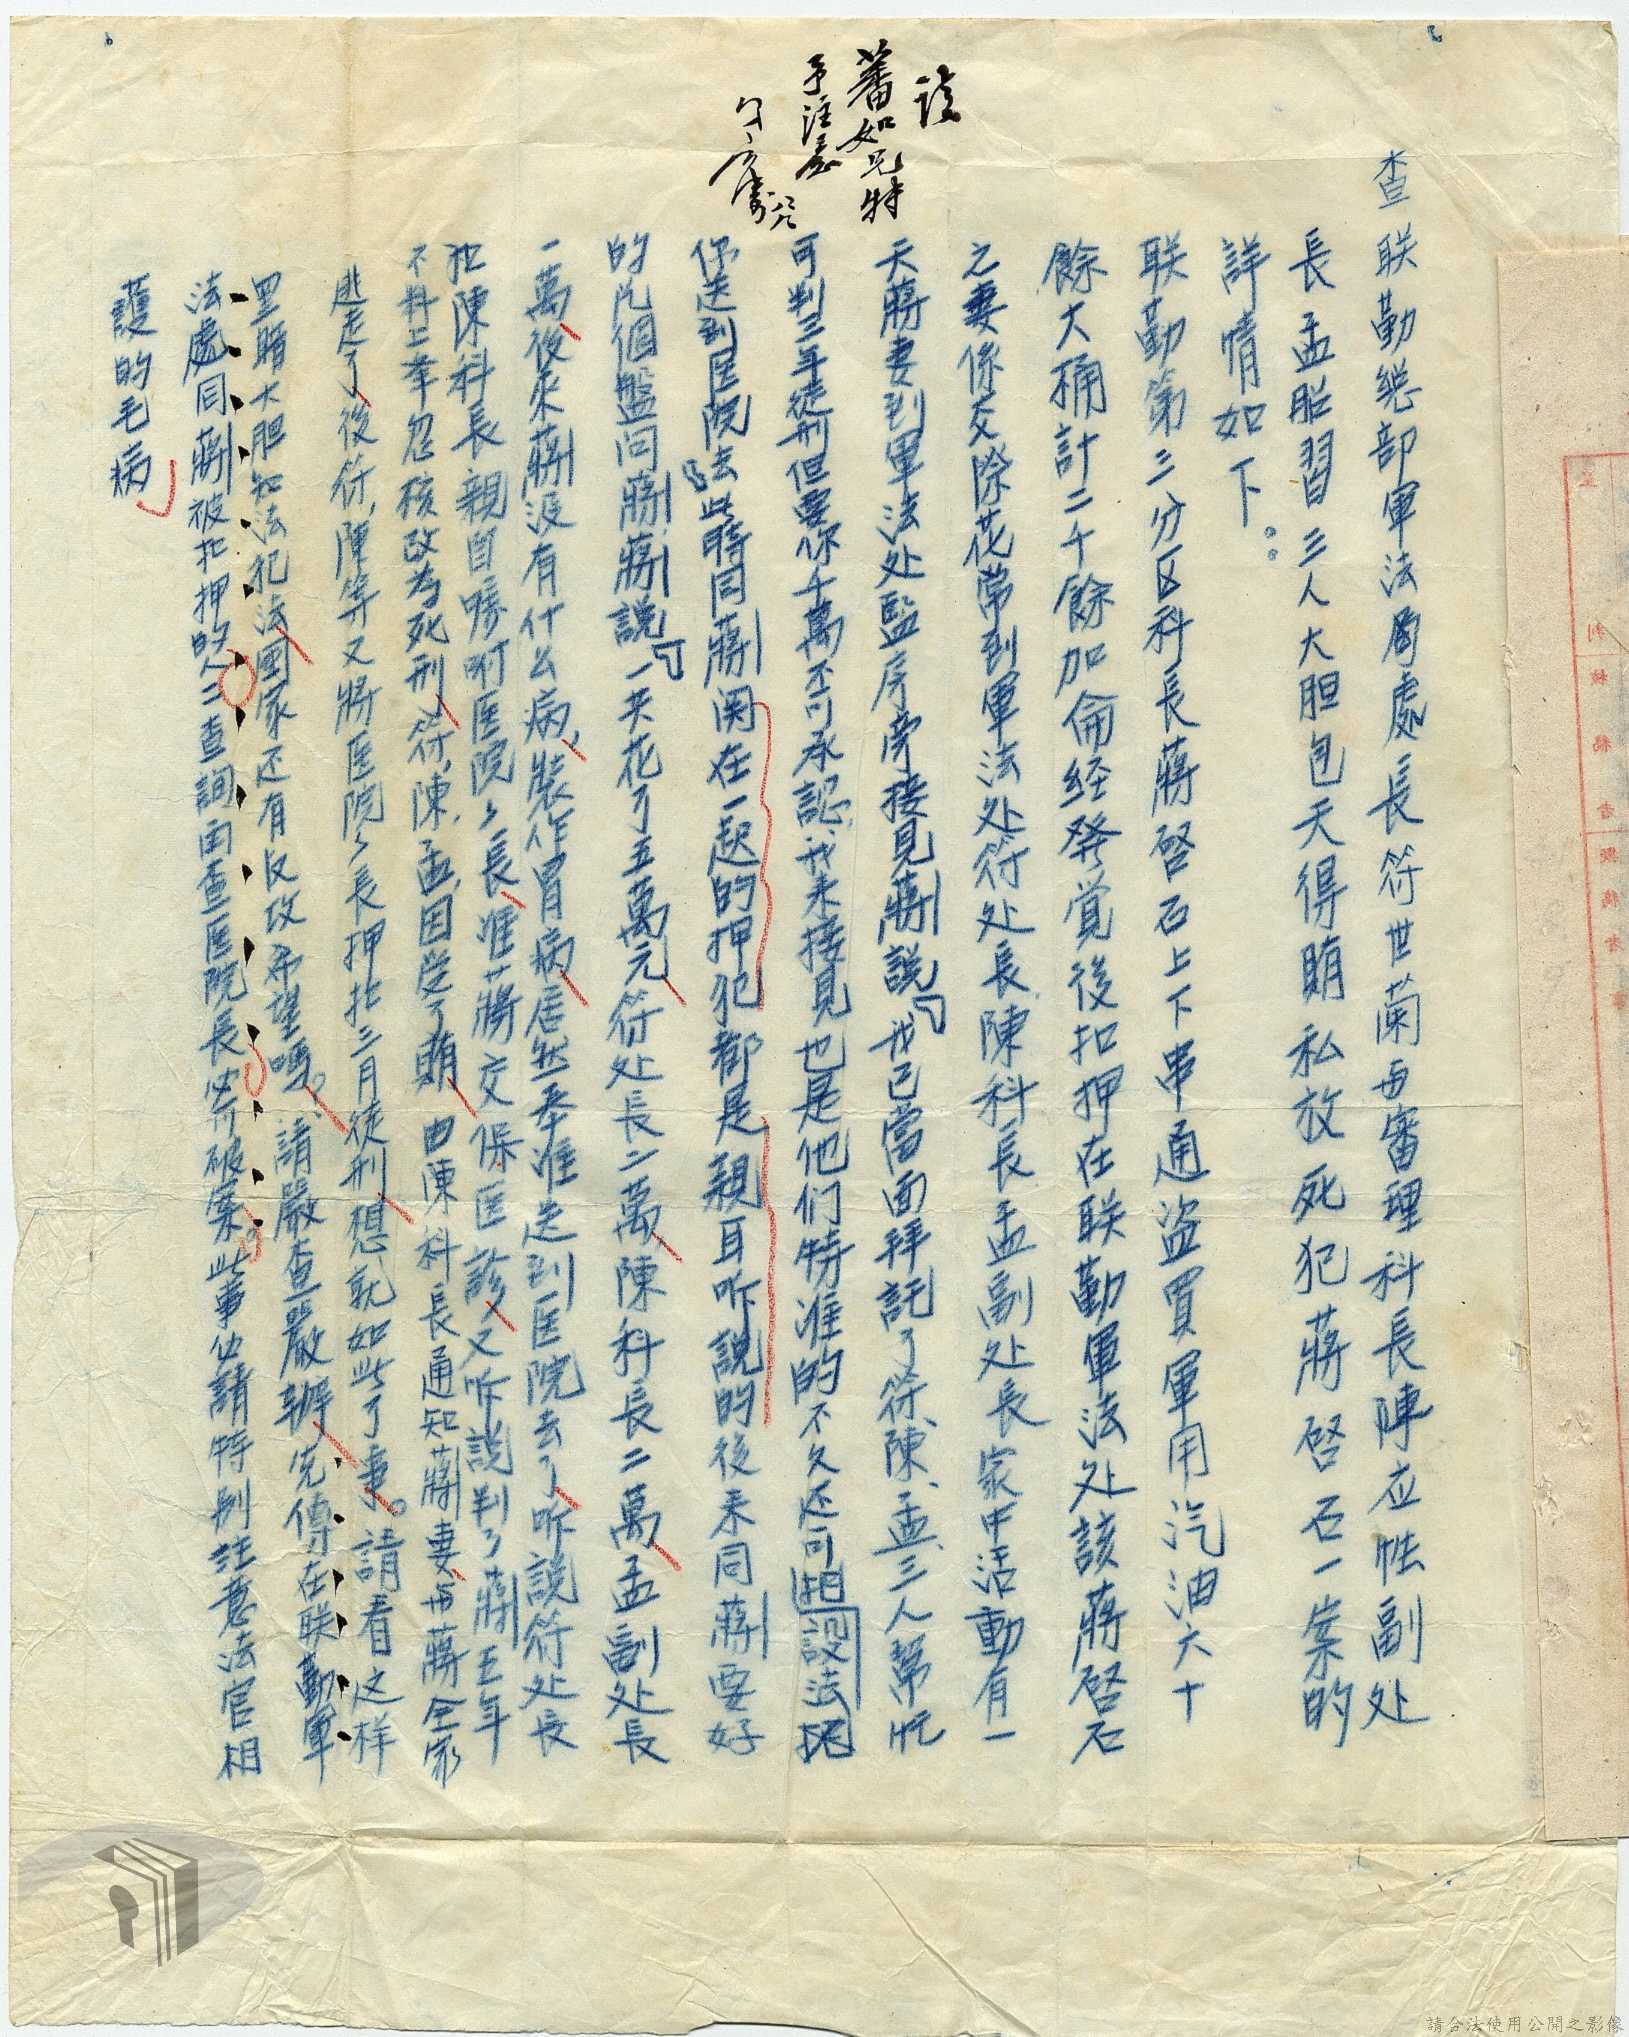 請
蕃如兄特
予注意
查联勤总部軍法處長符世蘭与審理科長陳应性副处
長孟昭習三人大胆包天得賄私放死犯蔣啓石一案的
詳情如下：
联勤第二分区科長蔣啓石上下串通盜買軍用汽油六十
餘大桶計二千餘加侖经發覚後扣押在联勤軍法处該蔣啓石
之妻係交際花常到軍法处符处長陳科長孟副处長家中活動有一
天蔣妻到軍法处監房旁接見蔣説「我已當面拜託了符、陳、孟、三人幫忙
可判三年徒刑但要你千萬不可承認，我来接見也是他们特准的不久还可設法把
你送到医院去」此時同蔣関在一起的押犯都是親耳听説的後来同蔣要好
的几個盤问蔣，蔣説「一共花了五萬元符处長二萬陳科長二萬孟副处長
一萬後来蔣没有什么病，裝作胃病居然奉准送到医院去了听説符处長
把陳科長親自嘱咐医院々長准蔣交保医診又听説判了蔣五年
不料上峯忽核改为死刑符，陳，孟，因受了賄由陳科長通知蔣妻与蔣全家
逃走了後符，陳等又將医院々長押扣三月徒刑想就如此了事。請看这样
黑暗大胆知法犯法國家还有反攻希望嗎。請嚴查嚴辦先傳在联勤軍
法處同蔣被扣押的人一查詢再查医院長必可破案。此事必請特别註意法官相
護的毛病
請合法使用公開之影像